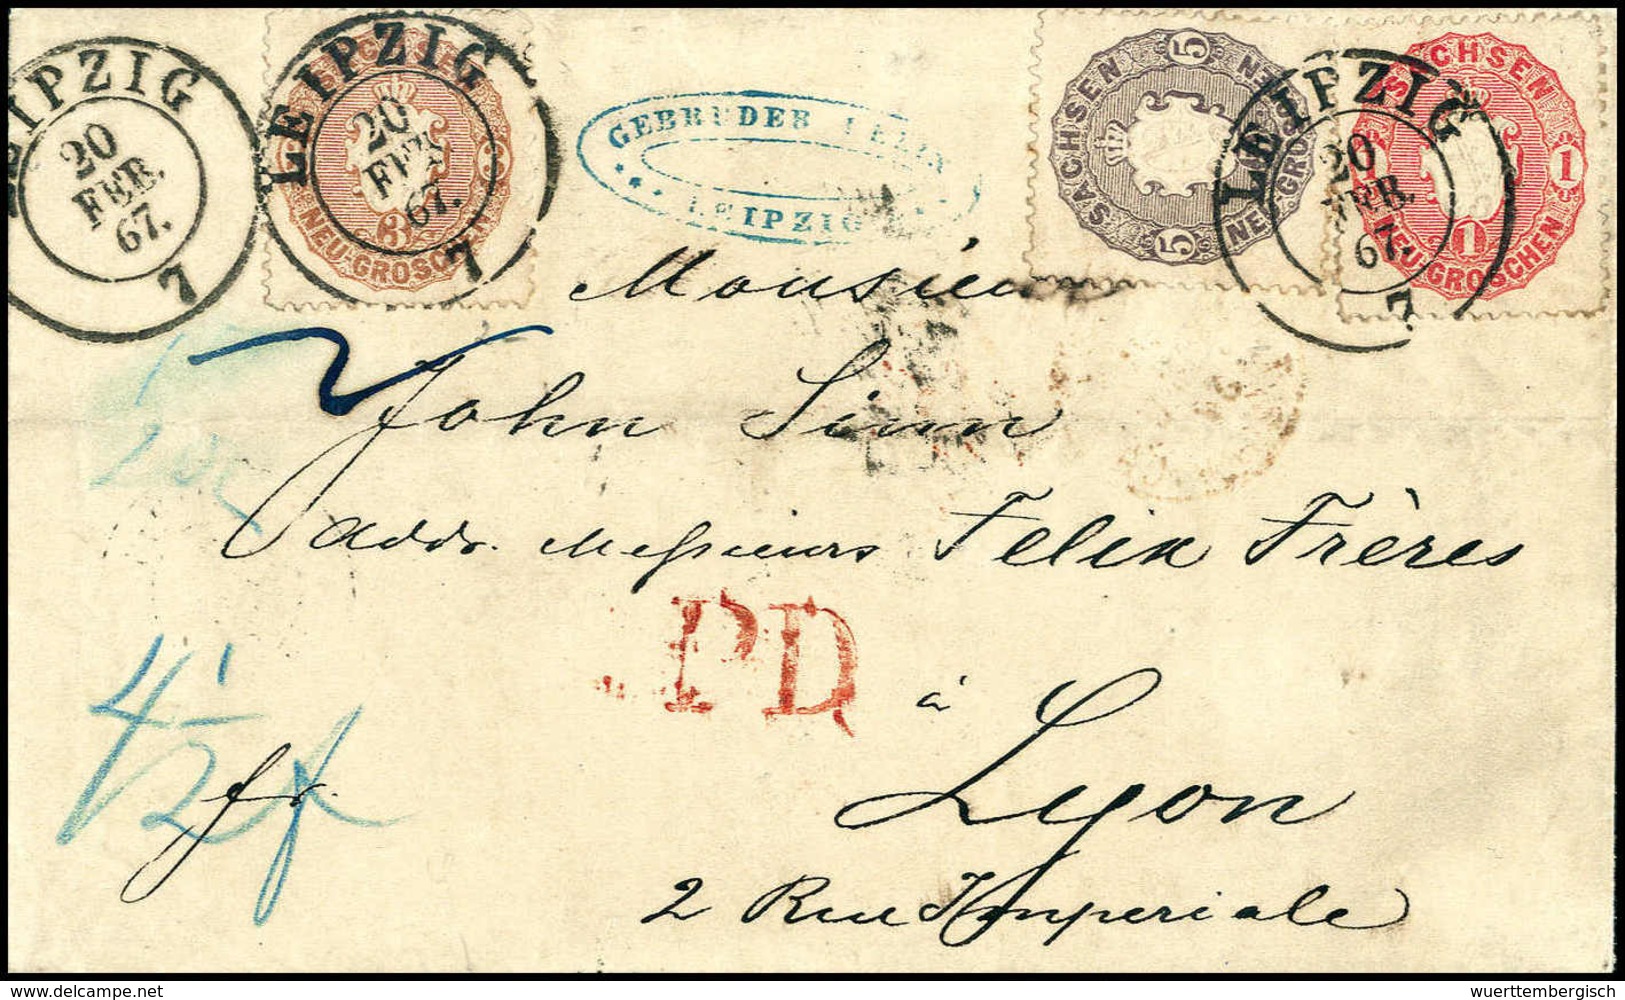 LEIPZIG
20
FEB.
67.
7
LEIPZIG
20
FEB.
67.
7
NEU-GROSCHEN
3
GEBRÜDER
LEIPZIG
SACHSEN
5
5
NEU-GROSCHEN
LEIPZIG
20
FEB.
67.
7
SACHSEN
1
1
NEU-GROSCHEN
Monsieur
John Sinn
addr. Messieurs Felix Frères
PD
à
Lyon
2 Rue Impériale
4 1/2
fr.
delcampe.net
wuerttembergisch